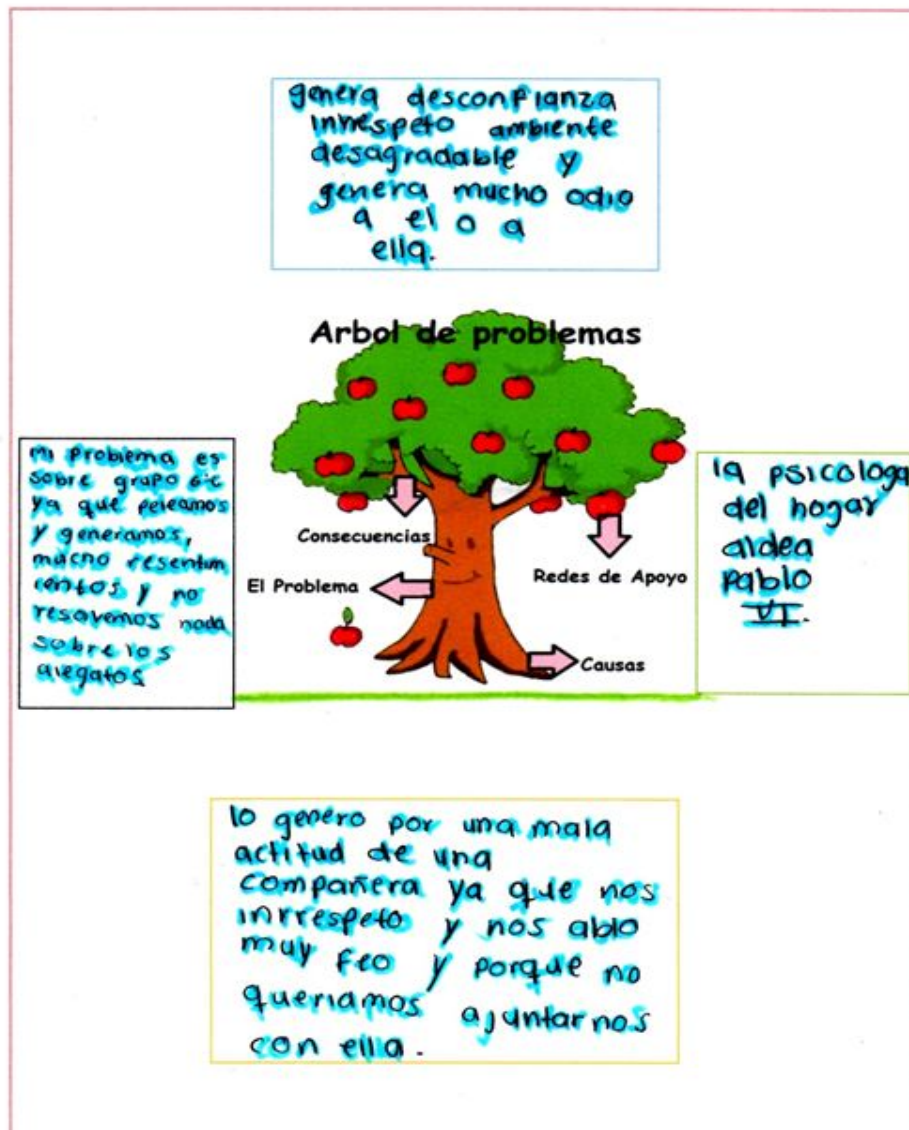 genera desconfianza
inrrespeto ambiente
desagradable y
genera mucho odio
a el o a
ella.
Arbol de problemas
mi problema es
sobre grupo 6°c
ya que peleamos
y generamos,
mucho resentim
ientos y no
resolvemos nada
sobre los
alegatos
Consecuencias
El Problema
Redes de Apoyo
Causas
la psicologa
del hogar
aldea
pablo
VI.
lo genero por una mala
actitud de una
compañera ya que nos
inrrespeto y nos ablo
muy feo y porque no
queriamos ajuntarnos
con ella.